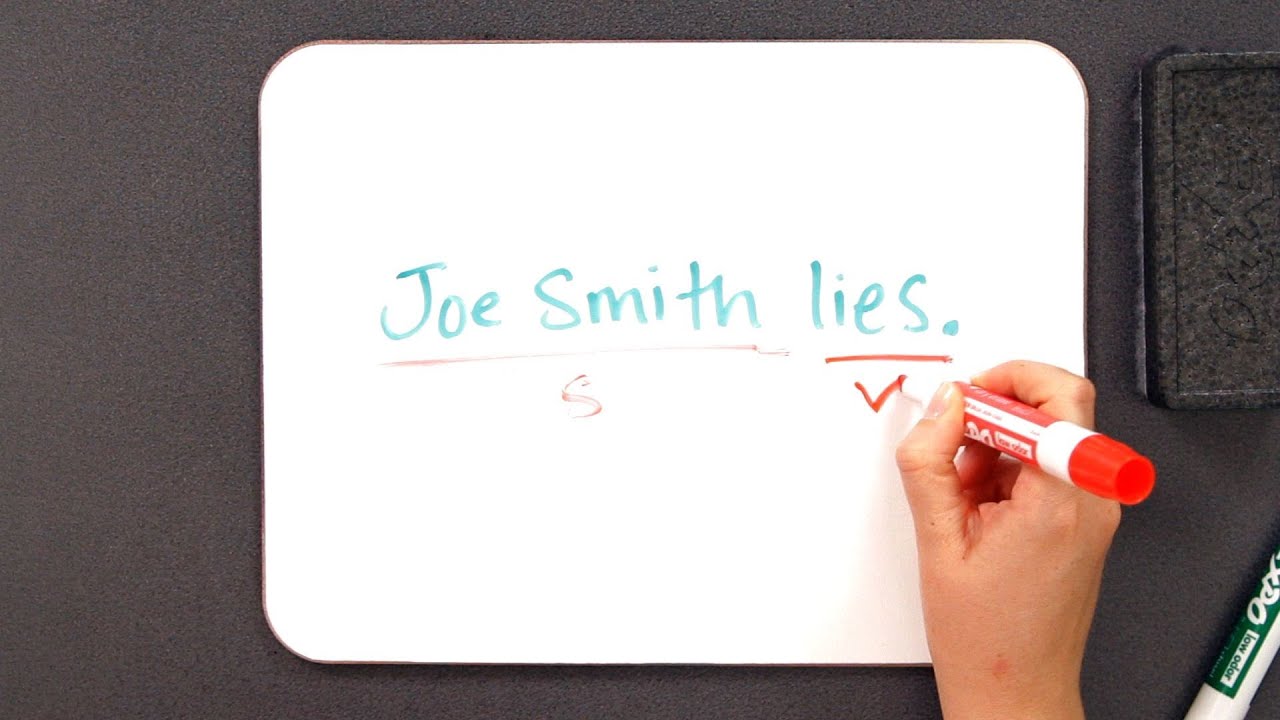 Joe Smith lies.
S V
EXPO low odor
EXPO
low odor